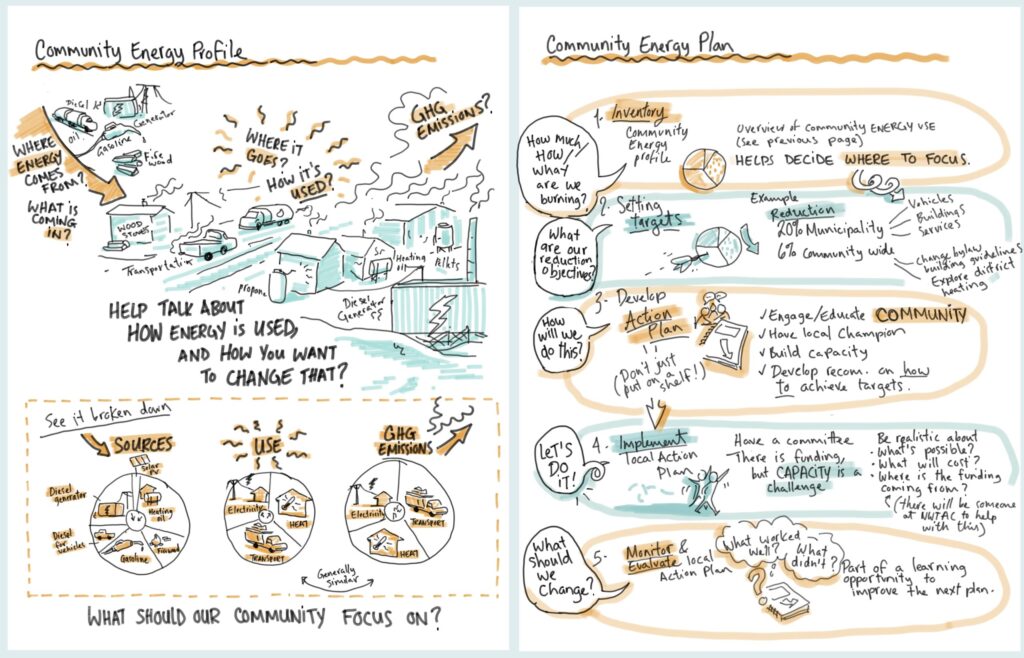 Community Energy Profile
Diesel
Generator
Oil
Gasoline
Fire
wood
WHERE
ENERGY
COMES
FROM?
WHAT IS
COMING
IN?
WHERE IT
GOES?
HOW IT'S
USED?
GHG
EMISSIONS?
WOOD
STOVES
Transportation
Propane
Heating
oil
Diesel
Generator
HELP TALK ABOUT
HOW ENERGY IS USED,
AND HOW YOU WANT
TO CHANGE THAT?
See it broken down
SOURCES
Solar
Diesel
generator
Heating
oil
Diesel
for
vehicles
Gasoline
Firewood
USE
Electricity
HEAT
TRANSPORT
GHG
EMISSIONS
Electricity
TRANSPORT
HEAT
Generally
similar
WHAT SHOULD OUR COMMUNITY FOCUS ON?
Community Energy Plan
How much
HOW
what
are we
burning?
1. Inventory
Community
Energy
profile
Overview of community ENERGY USE
(see previous page)
HELPS DECIDE WHERE TO FOCUS.
What
are our
reduction
objectives?
2. Setting
targets
Example
Reduction
20% Municipality
Vehicles
Buildings
Services
6% Community wide
Change bylaw
building guidelines
Explore district
heating
How
will we
do this?
3. Develop
Action
Plan
(Don't just
put on a
shelf!)
✓ Engage/Educate COMMUNITY
✓ Have local Champion
✓ Build capacity
✓ Develop recom. on how
to achieve targets.
LET'S
DO
IT!
4. Implement
local Action
Plan
Have a committee
There is funding,
but CAPACITY is a
challenge
Be realistic about
• What's possible?
• What will cost?
• Where is the funding
coming from?
(there will be someone
at NWTAC to help
with this)
What
should
we
Change?
5. Monitor &
Evaluate local
Action Plan
What worked
well?
What
didn't?
Part of a learning
opportunity to
improve the next plan.